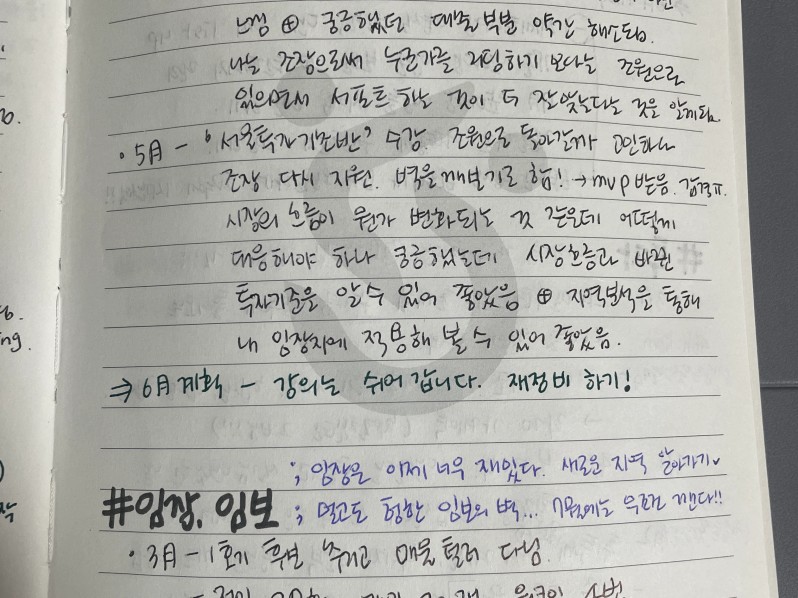 느낌 ⊕ 궁금했던 대출 부분 약간 해소됨.
나는 조장으로써 누군가를 리딩하기 보다는 조원으로
있으면서 서포트 하는 것이 더 잘맞는다는 것을 알게됨.
· 5月 - '서울투자기초반' 수강. 조원으로 돌아갈까 고민하다
조장 다시 지원. 벽을 깨보기로 함! → mvp 받음. 감격ㅠ.
시장의 흐름이 뭔가 변화되는 것 같은데 어떻게
대응해야 하나 궁금했는데 시장흐름과 바뀐
투자기준을 알 수 있어 좋았음 ⊕ 지역분석을 통해
내 임장지에 적용해 볼 수 있어 좋았음.
⇒ 6月 계획 - 강의는 쉬어 갑니다. 재정비 하기!
; 임장은 이제 너무 재밌다. 새로운 지역 알아가기
#임장. 임보 ; 멀고도 험한 임보의 벽... 7월에는 무조건 깬다!!
· 3月 - 1호기 후보 추리고 매물 털러 다님.